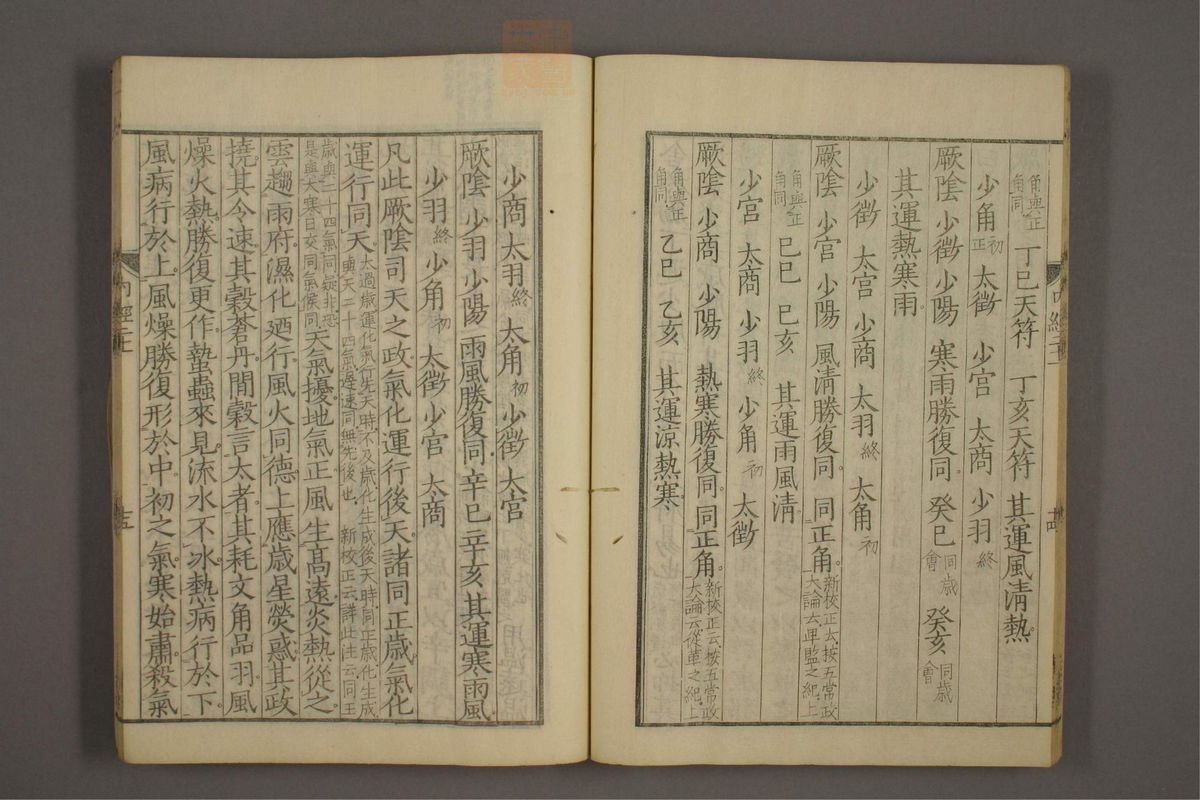 角與正角同 丁巳天符 丁亥天符 其運風清熱
少角初正 太徵 少宮 太商 少羽終
厥陰 少徵 少陽 寒雨勝復同 癸巳同歲會 癸亥同歲會
其運熱寒雨
少徵 太宮 少商 太羽終 太角初
厥陰 少宮 少陽 風清勝復同 同正角新校正云按五常政大論云卑監之紀上
角與正角同 己巳 己亥 其運雨風清
少宮 太商 少羽終 少角初 太徵
厥陰 少商 少陽 熱寒勝復同 同正角新校正云按五常政大論云從革之紀上
角與正角同 乙巳 乙亥 其運涼熱寒
內經二十一
十四
少商 太羽終 太角初 少徵 太宮
厥陰 少羽 少陽 雨風勝復同 辛巳 辛亥 其運寒雨風
少羽終 少角初 太徵 少宮 太商
凡此厥陰司天之政氣化運行後天諸同正歲氣化
運行同天太過歲運化氣行先天時不及歲化生成後天時同正歲化生成與天二十四氣遲速同無先後也 新校正云詳此注云同正
歲與二十四氣同疑非恐是與大寒日交同氣候同天氣擾地氣正風生高遠炎熱從之
雲趨雨府濕化迺行風火同德上應歲星熒惑其政
撓其令速其穀蒼丹間穀言太者其耗文角品羽風
燥火熱勝復更作蟄蟲來見流水不冰熱病行於下
風病行於上風燥勝復形於中初之氣寒始肅殺氣
十五